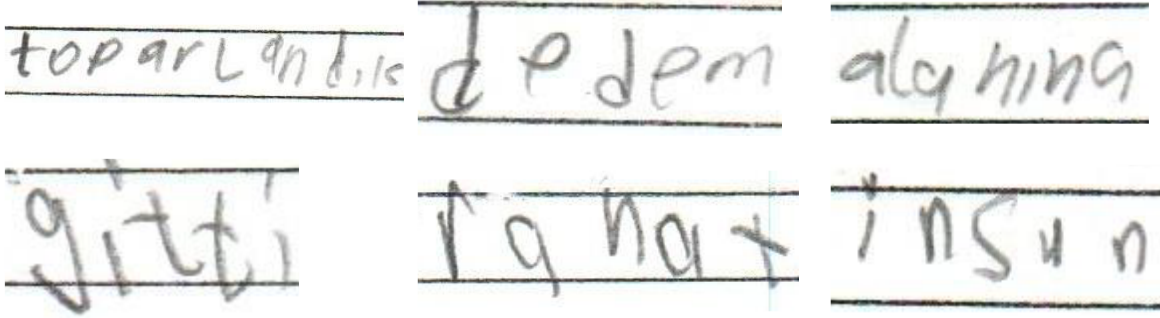 toparlandık dedem alanına
gitti rahat insan